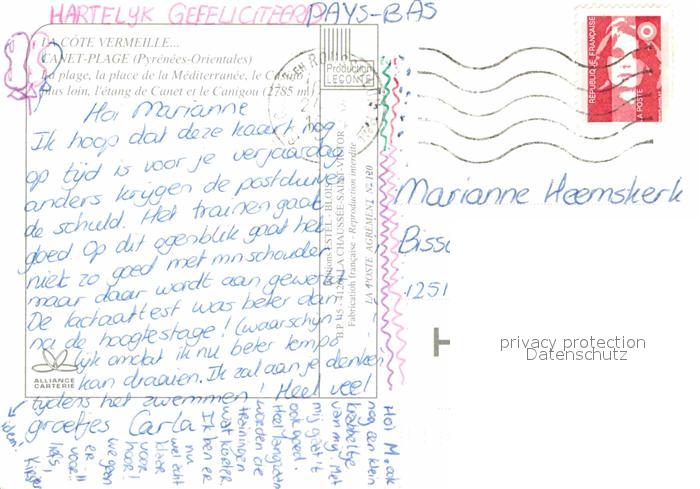 HARTELIJK GEFELICITEERD
PAYS-BAS
LA CÔTE VERMEILLE...
CANET-PLAGE (Pyrénées-Orientales)
La plage, la place de la Méditerranée, le Casino
plus loin, l'étang de Canet et le Canigou (2785 m)
Production
LECONTE
RÉPUBLIQUE FRANÇAISE
LA POSTE
Hoi Marianne
Ik hoop dat deze kaart nog
op tijd is voor je verjaardag
anders krijgen de postduiven
de schuld. Het trainen gaat
goed Op dit ogenblik gaat het
niet zo goed met mn schouder
maar daar wordt aan gewerkt
De lactaattest was beter dan
na de hoogtestage! (waarschijn-
lijk omdat ik nu beter tempo
kan draaien. Ik zal aan je denken
tijdens het zwemmen! Heel veel
groetjes Carla
Editions ESTEL - BLOIS
B.P. 45 - 41260 LA CHAUSSEE-SAINT-VICTOR
Fabrication française - Reproduction interdite
LA POSTE AGREMENT N° 180
ALLIANCE
CARTERIE
Marianne Heemskerk
Biss
1251
privacy protection
Datenschutz
Hoi M, ook
nog een klein
krabbeltje
van mij. Met
mij gaat 't
ook goed.
Heel langzaam
worden die
trainingen
wat korter.
Ik ben er
nu
wel echt
klaar
voor
hoor!
we gaan
er
voor!!